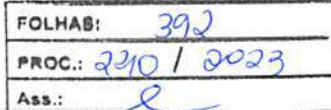 FOLHAS: 392
PROC.: 240 / 2023
Ass.: